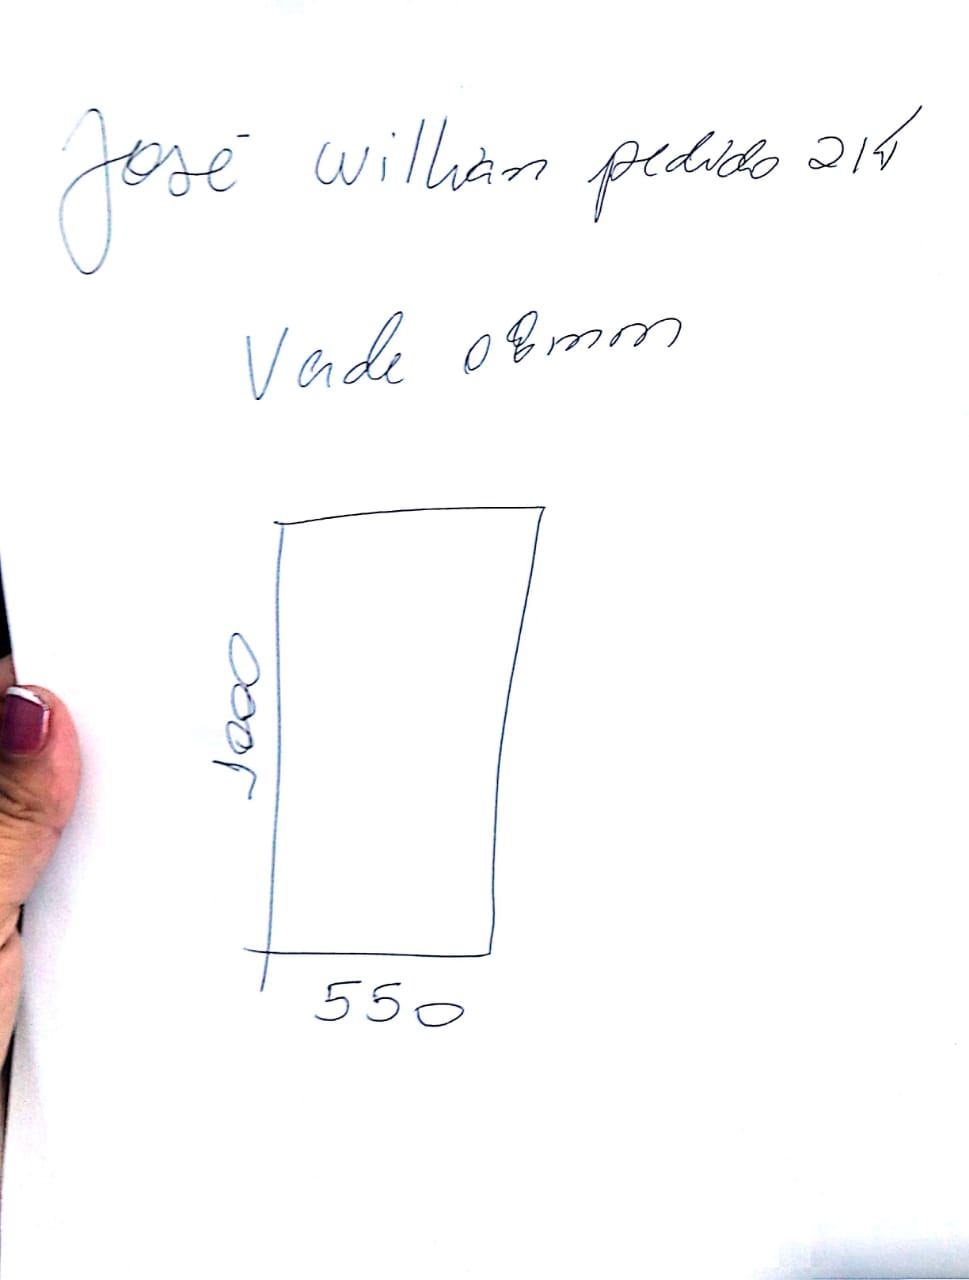 José willian pedido
Verde 08mm
1000
550